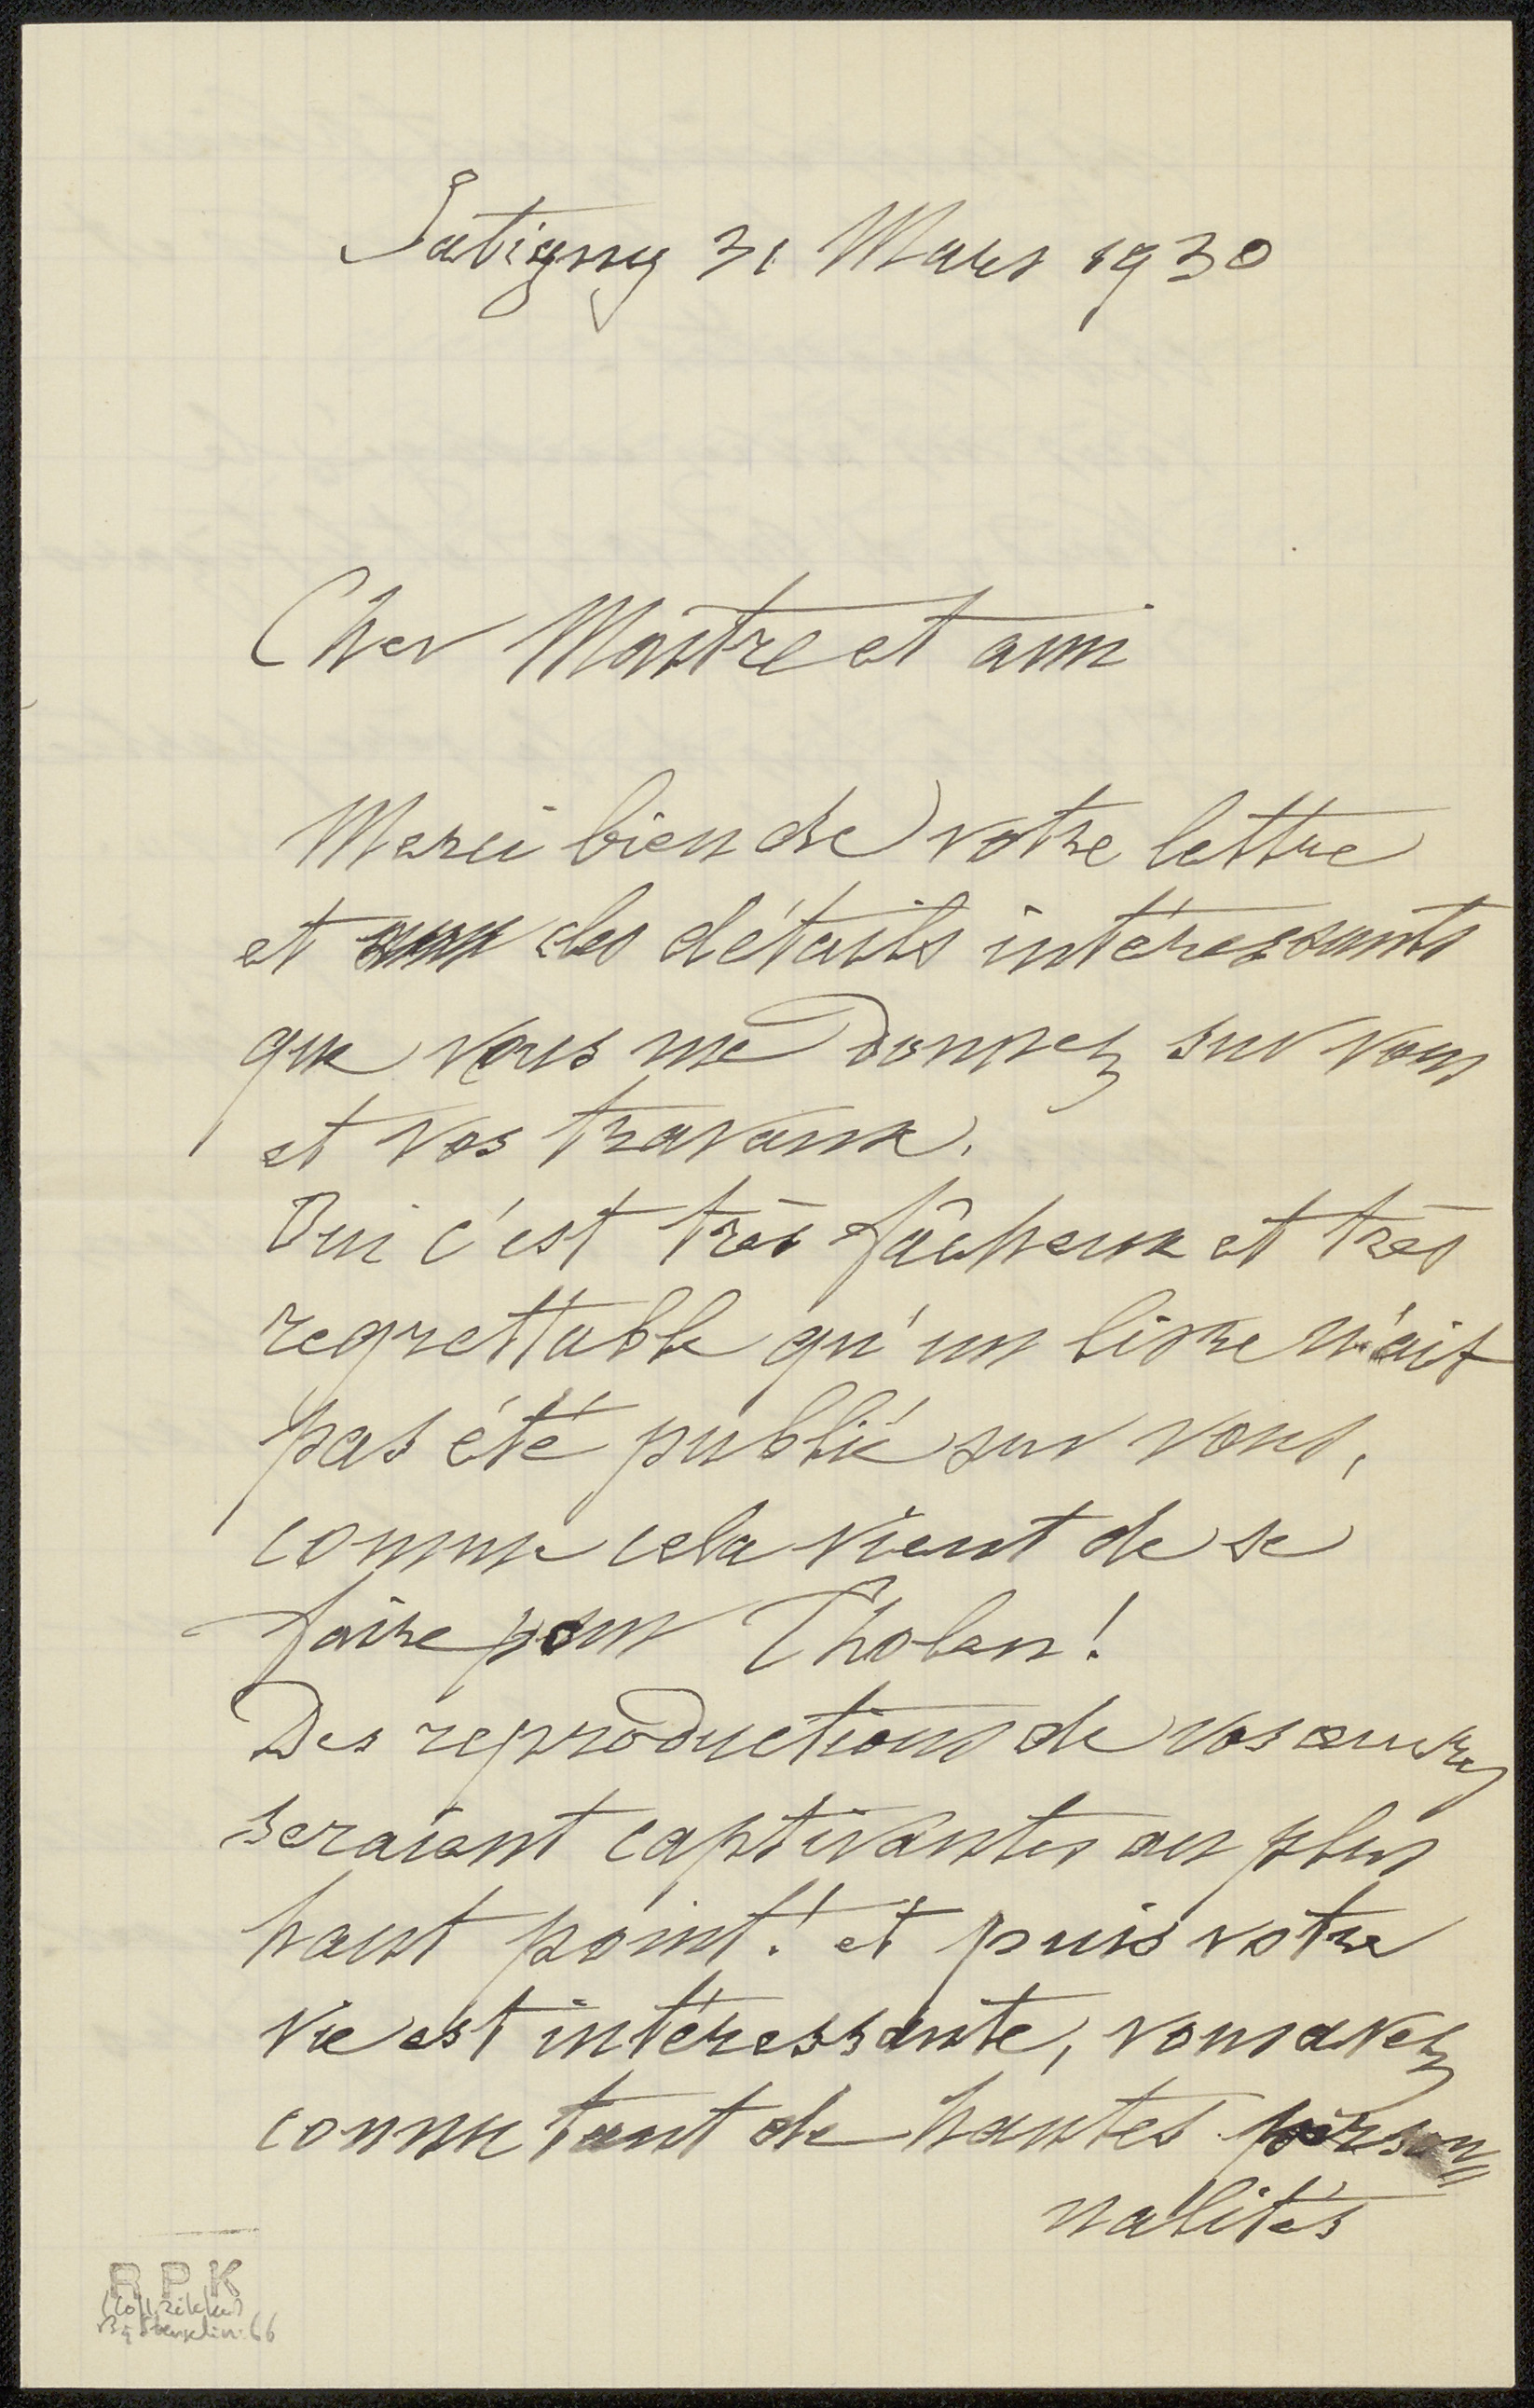 Satigny 31 Mars 1930
Cher Maître et ami
Merci bien de votre lettre
et des détails intéressants
que vous me donnez sur vous
et vos travaux.
Oui c'est très fâcheux et très
regrettable qu'un livre n'ait
pas été publié sur vous,
comme cela vient de se
faire pour Tholen!
Des reproductions de vos œuvres
seraient captivantes au plus
haut point! et puis votre
vie est intéressante, vous avez
connu tant de hautes person=
nalités
R P K